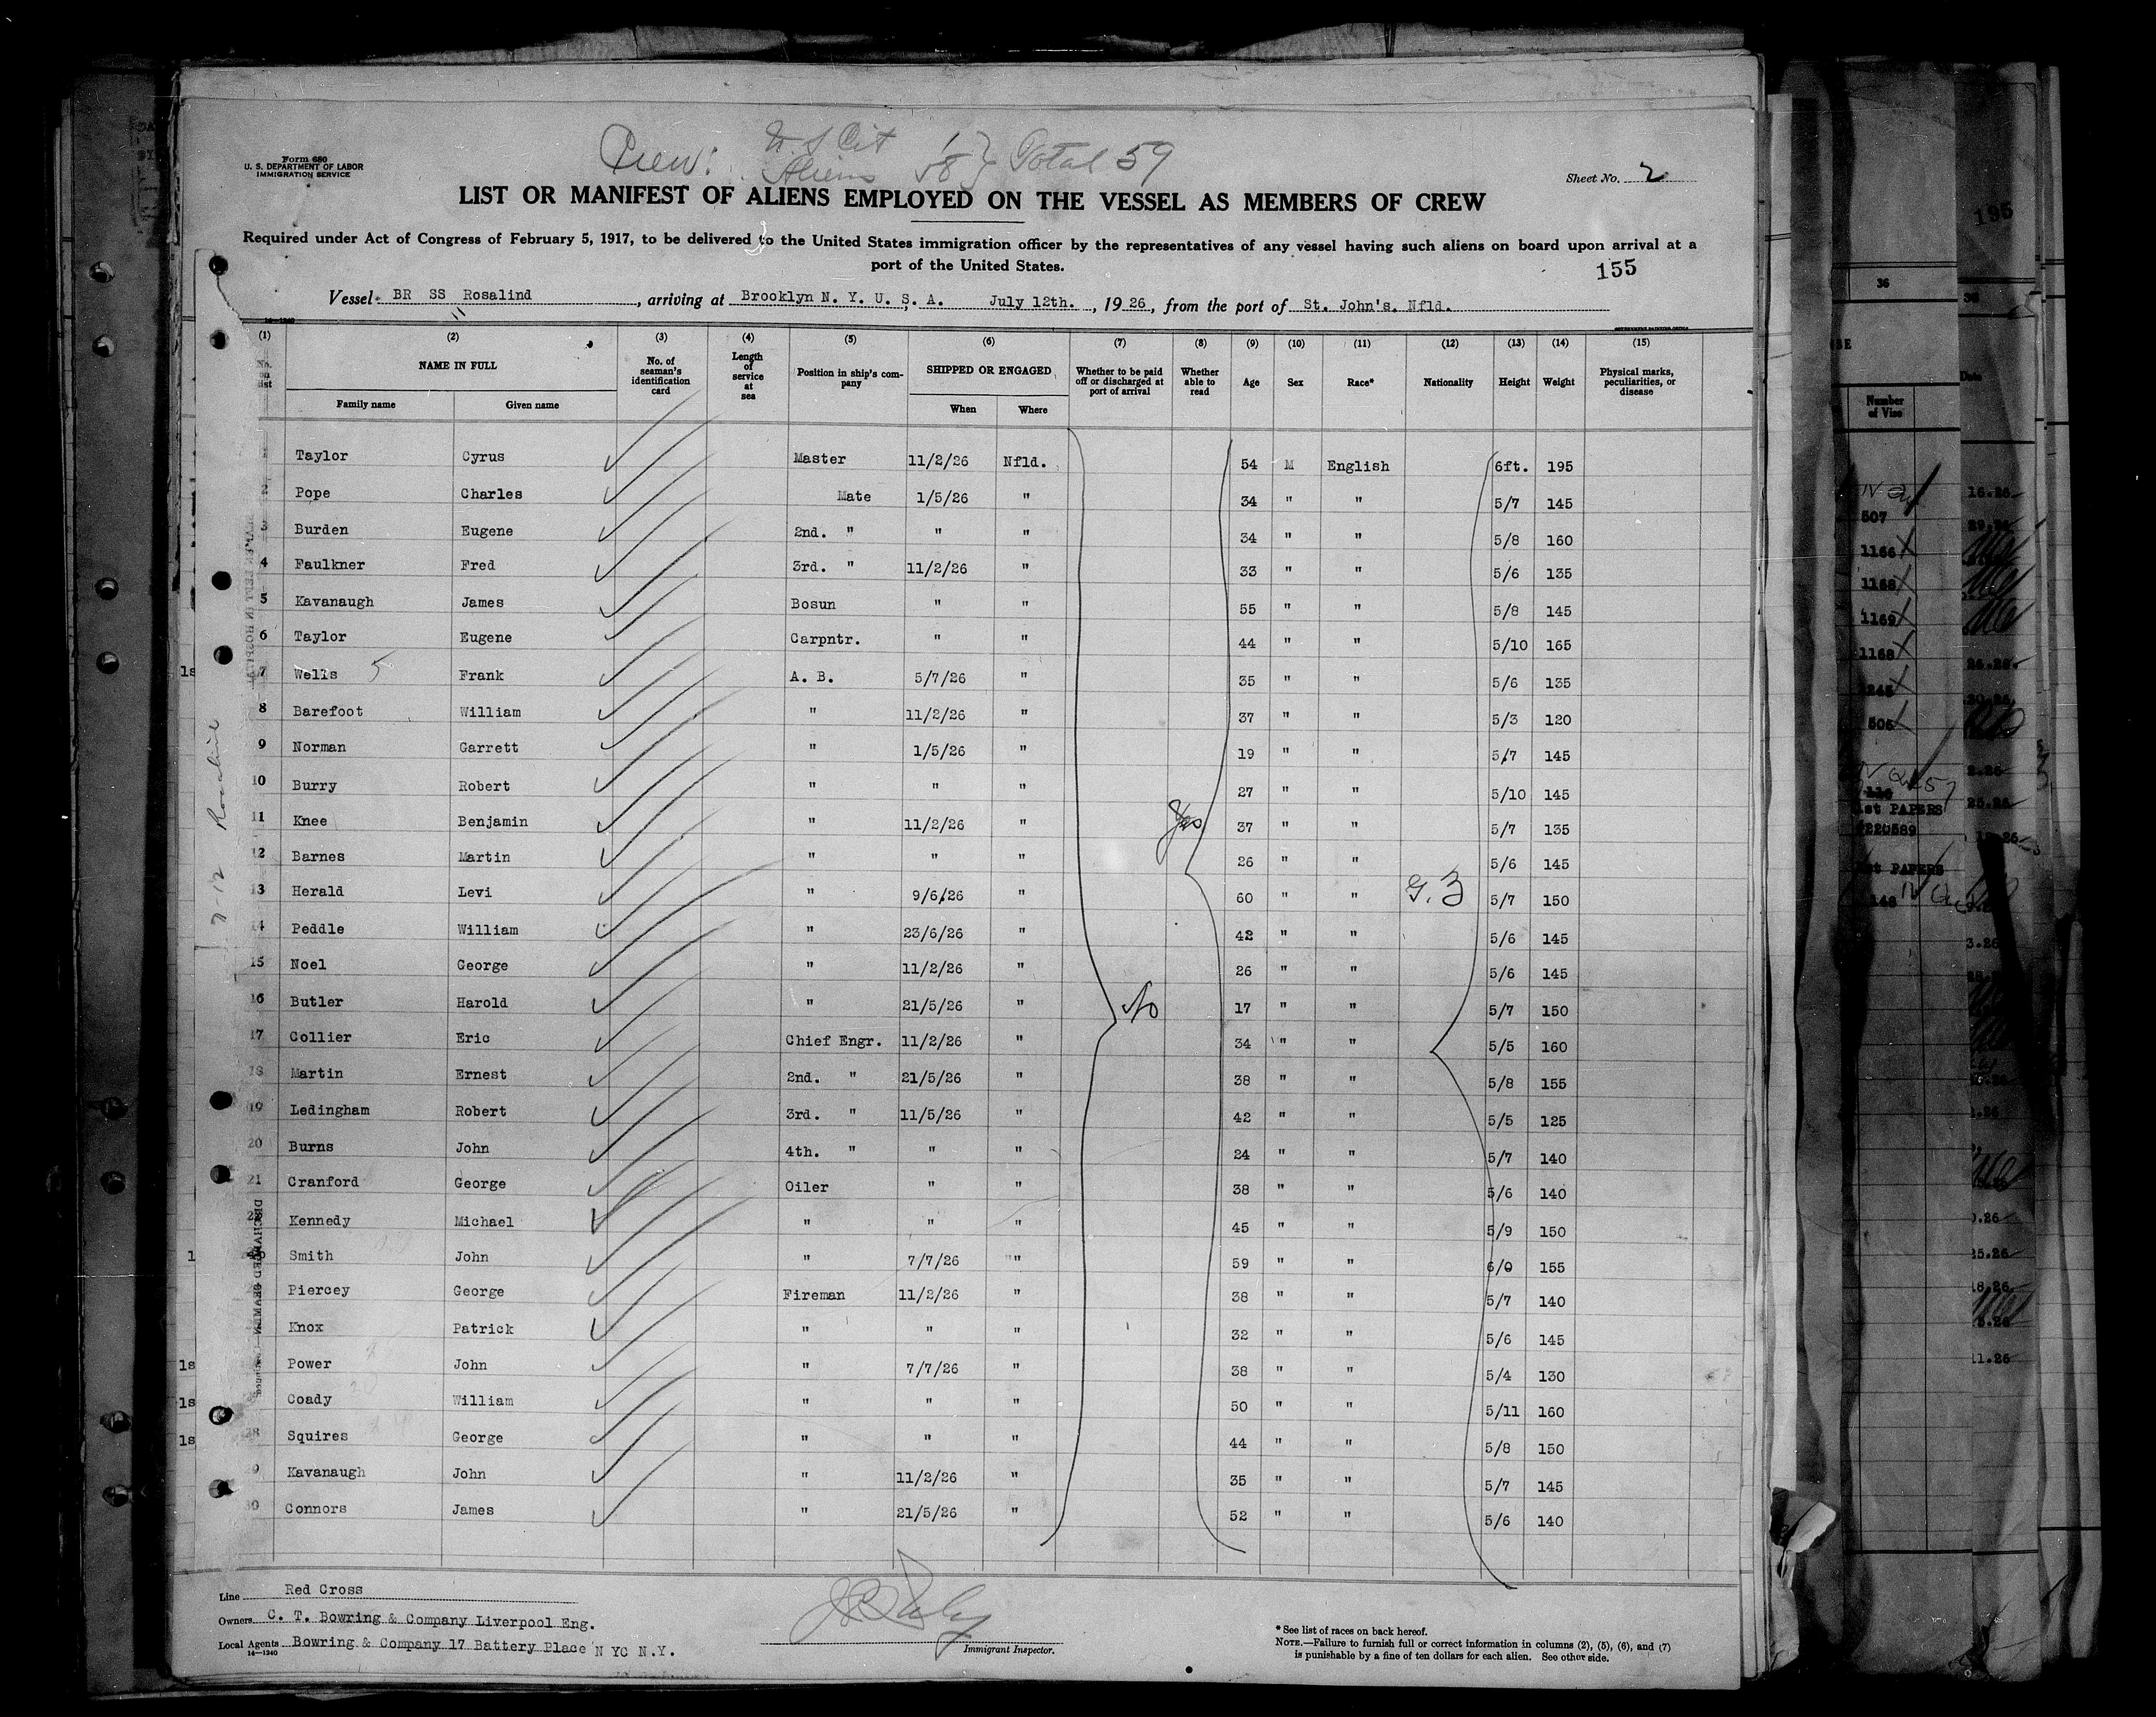 Crew: U.S Cit 1
Aliens 58 } Total 59
Form 680
U. S. DEPARTMENT OF LABOR
IMMIGRATION SERVICE
Sheet No. 2
LIST OR MANIFEST OF ALIENS EMPLOYED ON THE VESSEL AS MEMBERS OF CREW
Required under Act of Congress of February 5, 1917, to be delivered to the United States immigration officer by the representatives of any vessel having such aliens on board upon arrival at a
port of the United States.
155
Vessel BR SS Rosalind, arriving at Brooklyn N. Y. U. S. A. July 12th., 1926, from the port of St. John's. Nfld.
(1) (2) (3) (4) (5) (6) (7) (8) (9) (10) (11) (12) (13) (14) (15)
No. on list NAME IN FULL Family name Given name No. of seaman's identification card Length of service at sea Position in ship's company SHIPPED OR ENGAGED When Where Whether to be paid off or discharged at port of arrival Whether able to read Age Sex Race* Nationality Height Weight Physical marks, peculiarities, or disease
1 Taylor Cyrus Master 11/2/26 Nfld. 54 M English 6ft. 195
2 Pope Charles Mate 1/5/26 " 34 " " 5/7 145
3 Burden Eugene 2nd. " " " 34 " " 5/8 160
4 Faulkner Fred 3rd. " 11/2/26 " 33 " " 5/6 135
5 Kavanaugh James Bosun " " 55 " " 5/8 145
6 Taylor Eugene Carpntr. " " 44 " " 5/10 165
7 Wells Frank A. B. 5/7/26 " 35 " " 5/6 135
8 Barefoot William " 11/2/26 " 37 " " 5/3 120
9 Norman Garrett " 1/5/26 " 19 " " 5/7 145
10 Burry Robert " " " 27 " " 5/10 145
11 Knee Benjamin " 11/2/26 " Yes 37 " " 5/7 135
12 Barnes Martin " " " 26 " " 5/6 145
13 Herald Levi " 9/6/26 " 60 " " G.B 5/7 150
14 Peddle William " 23/6/26 " 42 " " 5/6 145
15 Noel George " 11/2/26 " 26 " " 5/6 145
16 Butler Harold " 21/5/26 " No 17 " " 5/7 150
17 Collier Eric Chief Engr. 11/2/26 " 34 " " 5/5 160
18 Martin Ernest 2nd. " 21/5/26 " 38 " " 5/8 155
19 Ledingham Robert 3rd. " 11/5/26 " 42 " " 5/5 125
20 Burns John 4th. " " " 24 " " 5/7 140
21 Cranford George Oiler " " 38 " " 5/6 140
22 Kennedy Michael " " " 45 " " 5/9 150
Smith John " 7/7/26 " 59 " " 6/0 155
Piercey George Fireman 11/2/26 " 38 " " 5/7 140
Knox Patrick " " " 32 " " 5/6 145
Power John " 7/7/26 " 38 " " 5/4 130
Coady William " " " 50 " " 5/11 160
28 Squires George " " " 44 " " 5/8 150
29 Kavanaugh John " 11/2/26 " 35 " " 5/7 145
30 Connors James " 21/5/26 " 52 " " 5/6 140
7-12 Rosalind
Line Red Cross
Owners C. T. Bowring & Company Liverpool Eng.
Local Agents Bowring & Company 17 Battery Place N YC N.Y.
14—1240
Immigrant Inspector.
* See list of races on back hereof.
NOTE.—Failure to furnish full or correct information in columns (2), (5), (6), and (7)
is punishable by a fine of ten dollars for each alien. See other side.
195
36
Number
of Visa
507
1166
1168
1169
1168
506
1st PAPERS